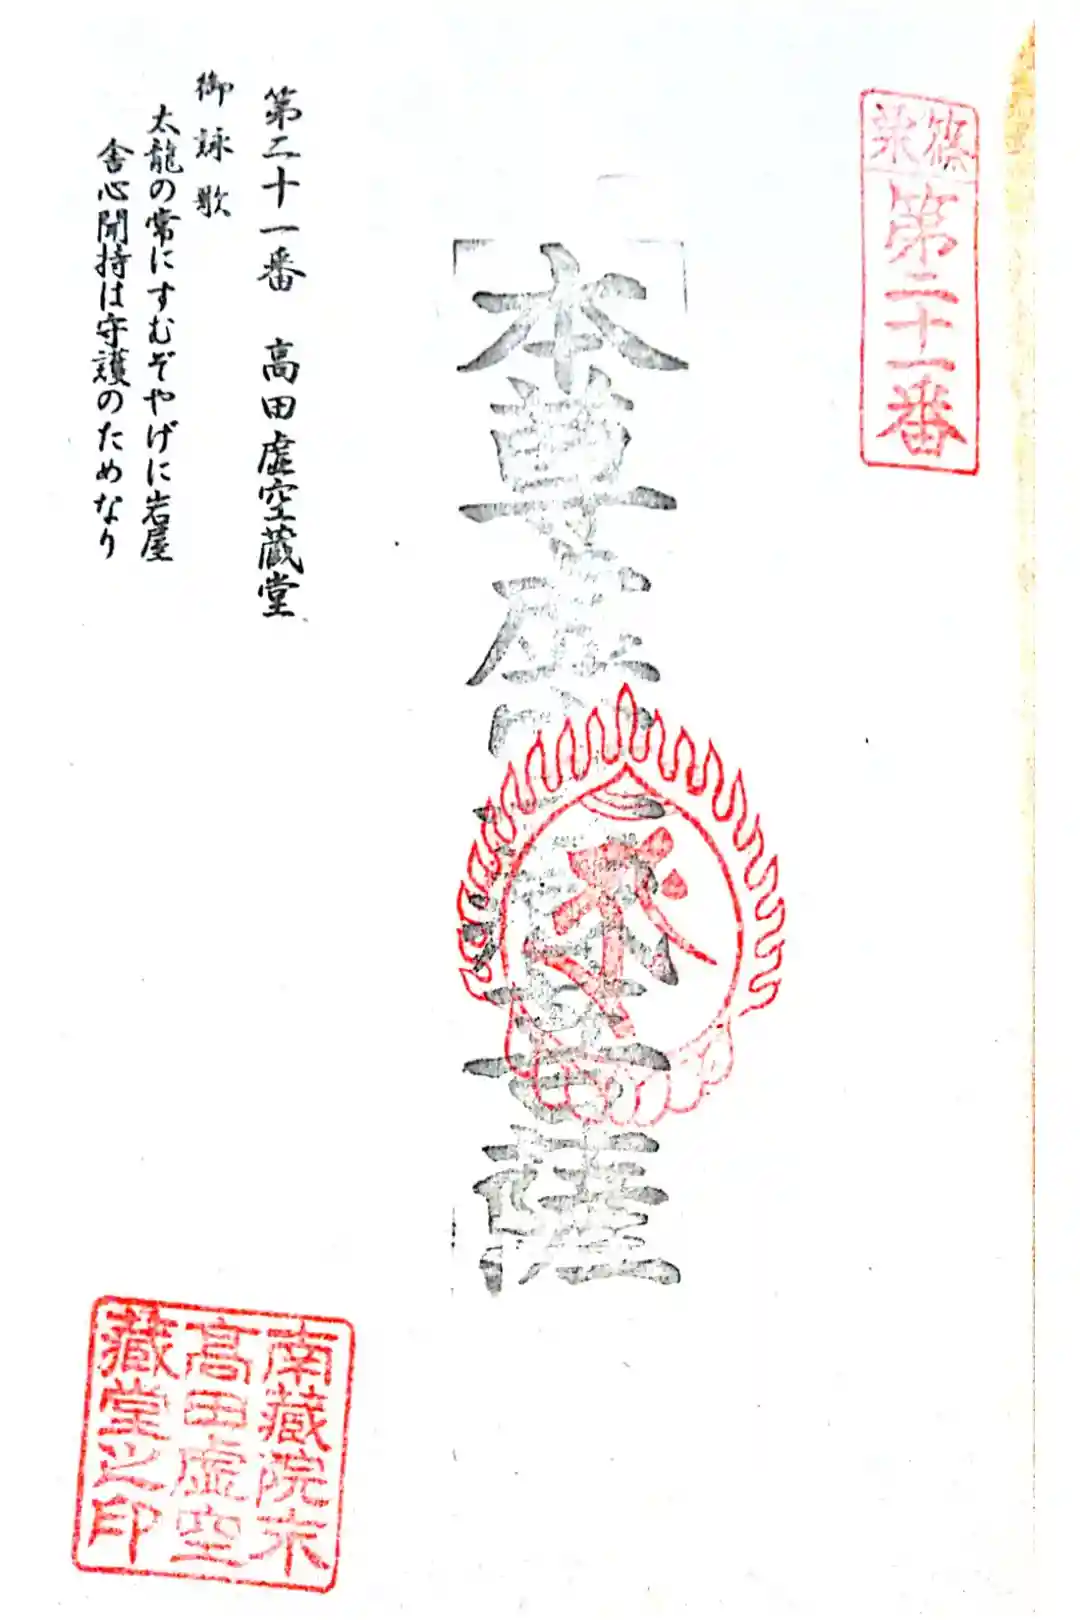 篠栗
第二十一番
本尊虚空蔵菩薩
第二十一番　高田虚空蔵堂
御詠歌
太龍の常にすむぞやげに岩屋
舎心聞持は守護のためなり
南藏院木
高田虚空
藏堂之印